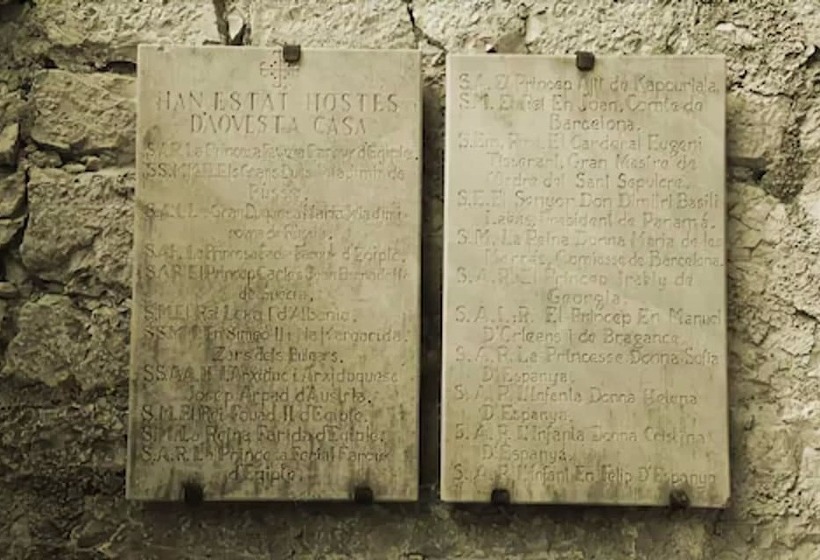 HAN ESTAT HOSTES
D'AQVESTA CASA
S.A.R. La Princesa Farouk d'Egipte.
SS. Els Grans Ducs Vladimir de
Russia.
S.A.I. La Gran Duquesa Maria Vladimi-
rovna de Russia.
S.A.R. La Princesa d'Egipte.
S.A.R. El Princep Carles Bernadotte
de Suecia.
S.M. El Rei Leka I d'Albania.
SS.MM. En Simeo II i Na Margarida.
Zars dels Bulgars.
SS.AA.II. L'Arxiduc i Arxiduquesa
Josep Arpad d'Austria.
S.M. El Rei Fouad II d'Egipte.
S.M. La Reina Farida d'Egipte.
S.A.R. La Princesa Ferial Farouk
d'Egipte.
S.A. El Princep Ajit de Kapourtala.
S.M. El Rei En Joan, Comte de
Barcelona.
S.Em. Rma. El Cardenal Eugeni
Tisserant, Gran Mestre de
l'Ordre del Sant Sepulcre.
S.E. El Senyor Don Dimitri Basili
Lakas, President de Panamá.
S.M. La Reina Donna Maria de les
Mercés, Comtesse de Barcelona.
S.A.R. El Princep Irakly de
Georgia.
S.A.I.R. El Princep En Manuel
D'Orleans i de Bragança.
S.A.R. La Princesse Donna Sofia
D'Espanya.
S.A.R. L'Infanta Donna Helena
D'Espanya.
S.A.R. L'Infanta Donna Cristina
D'Espanya.
S.A.R. L'Infant En Felip D'Espanya